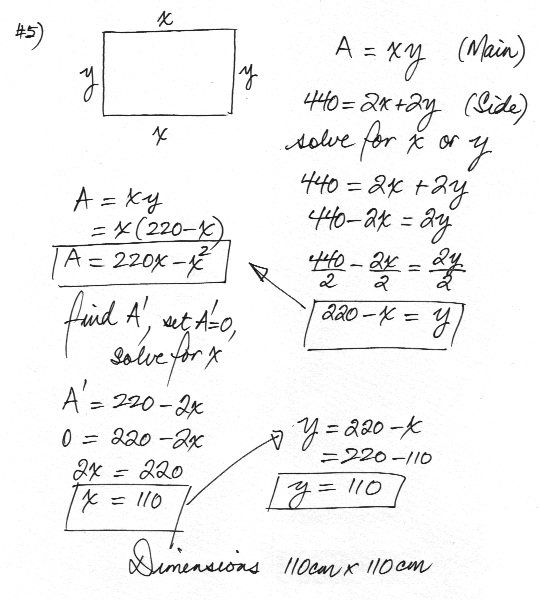 #5)
x
y
y
x
A = xy (Main)
440 = 2x + 2y (Side)
solve for x or y
440 = 2x + 2y
440 - 2x = 2y
440/2 - 2x/2 = 2y/2
220 - x = y
A = xy
= x(220 - x)
A = 220x - x²
find A', set A'=0,
solve for x
A' = 220 - 2x
0 = 220 - 2x
2x = 220
x = 110
y = 220 - x
= 220 - 110
y = 110
Dimensions 110cm x 110cm